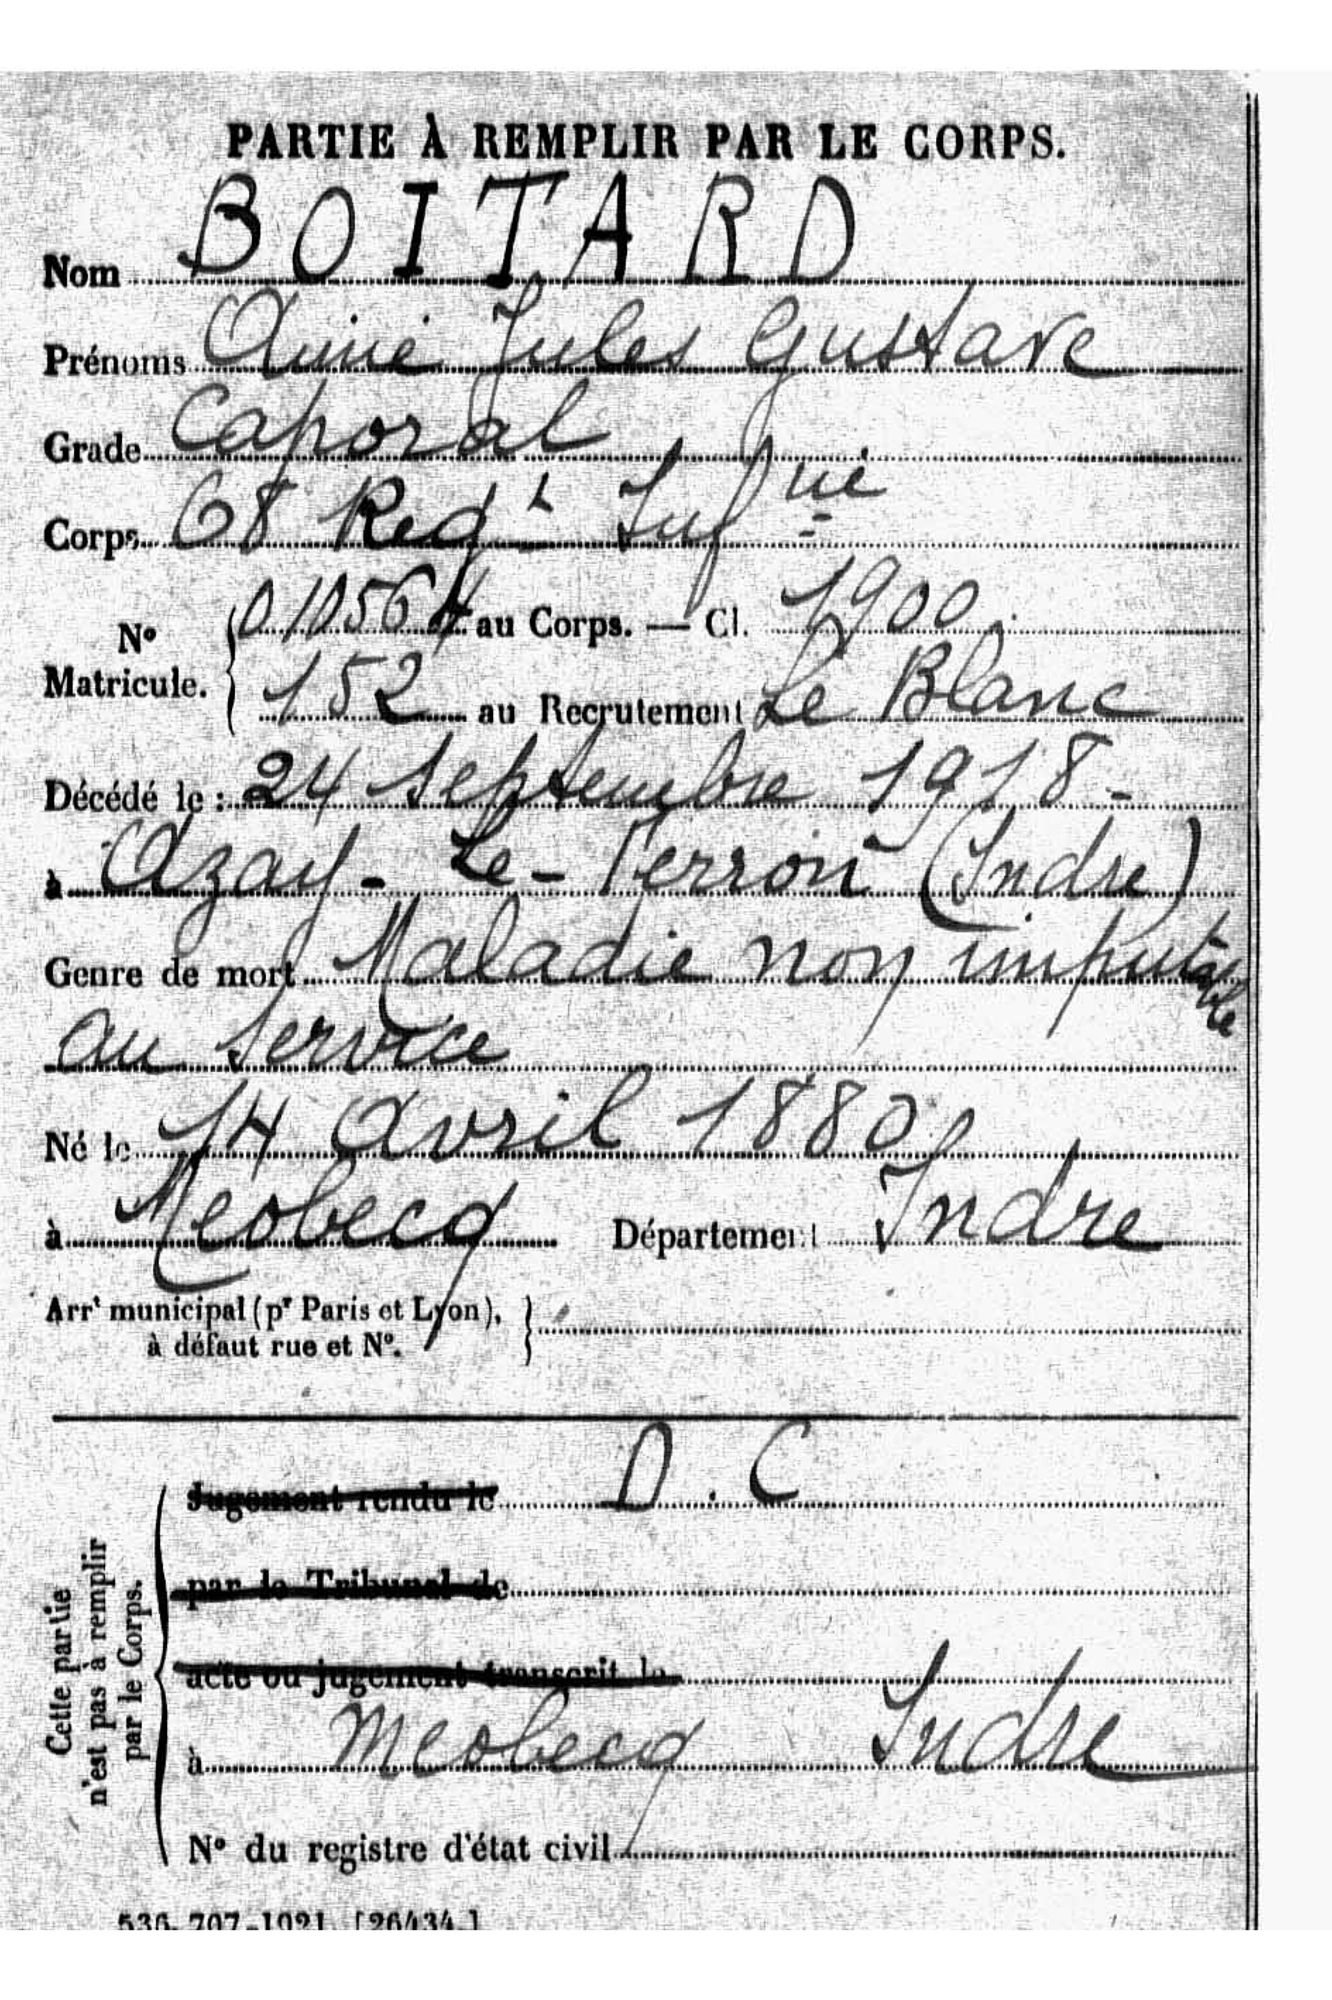 PARTIE À REMPLIR PAR LE CORPS.
Nom BOITARD
Prénoms Aimé Jules Gustave
Grade Caporal
Corps 68 Reg^t Inf^rie
N° Matricule. { 011056 au Corps. — Cl. 1900
152 au Recrutement Le Blanc
Décédé le : 24 Septembre 1918 -
à Azay-Le-Ferron (Indre)
Genre de mort Maladie non imputable
au service
Né le 14 avril 1880
à Meobecq Département Indre
Arr^t municipal (p^r Paris et Lyon),
à défaut rue et N°.
D.C
Jugement rendu le
par le Tribunal de
acte ou jugement transcrit le
à Meobecq Indre
N° du registre d'état civil
Cette partie
n'est pas à remplir
par le Corps.
536.707-1921. [26434.]